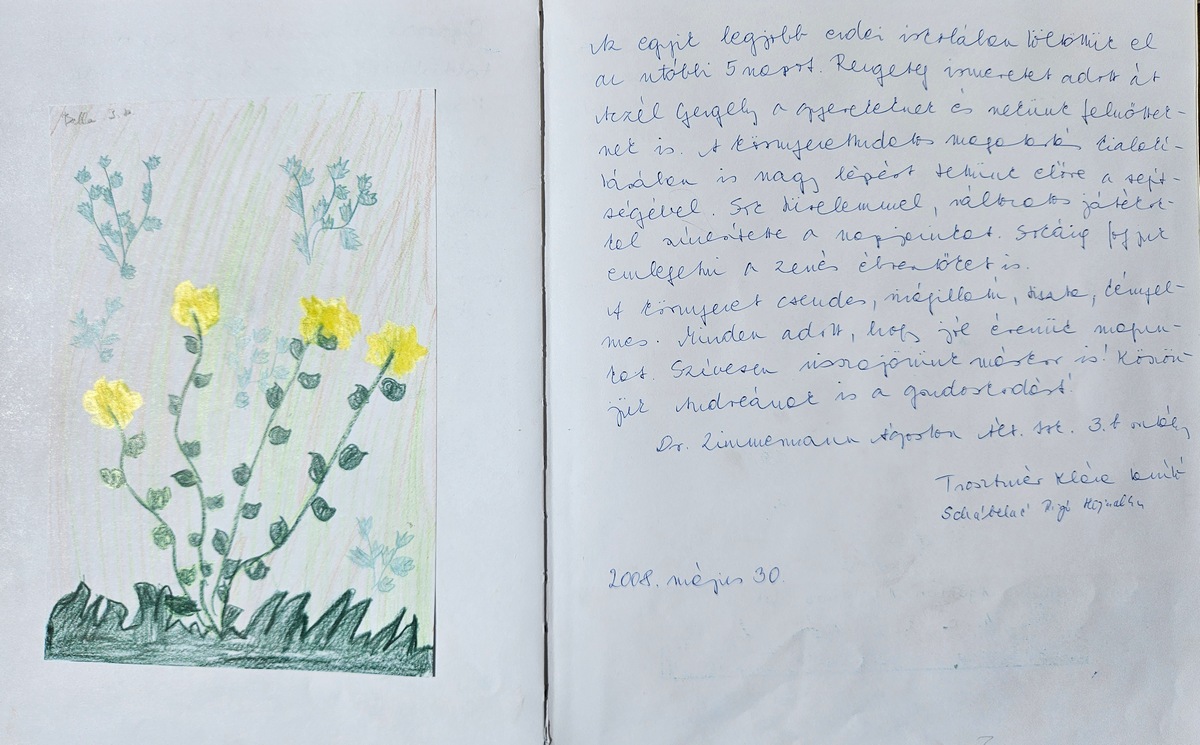 Bella 3.b
Az egyik legjobb erdei iskolában töltöttük el
az utóbbi 5 napot. Rengeteg ismeretet adott át
Aczél Gergely a gyerekeknek és nekünk felnőttek-
nek is. A környezettudatos magatartás kialakí-
tásában is nagy lépést tettünk előre a segít-
ségével. Sok türelemmel, változatos játékok-
kal színesítette a napjainkat. Sokáig fogjuk
emlegetni a zenés ébresztőket is.
A környezet csendes, megillető, tiszta, kényel-
mes. Minden adott, hogy jól érezzük magun-
kat. Szívesen visszajövünk máskor is! Köszön-
jük Andreának is a gondoskodást!
Dr. Zimmermann Ágoston Ált. Isk. 3.b osztály
Trosztmér Klára tanító
Hajnalka
2008. május 30.